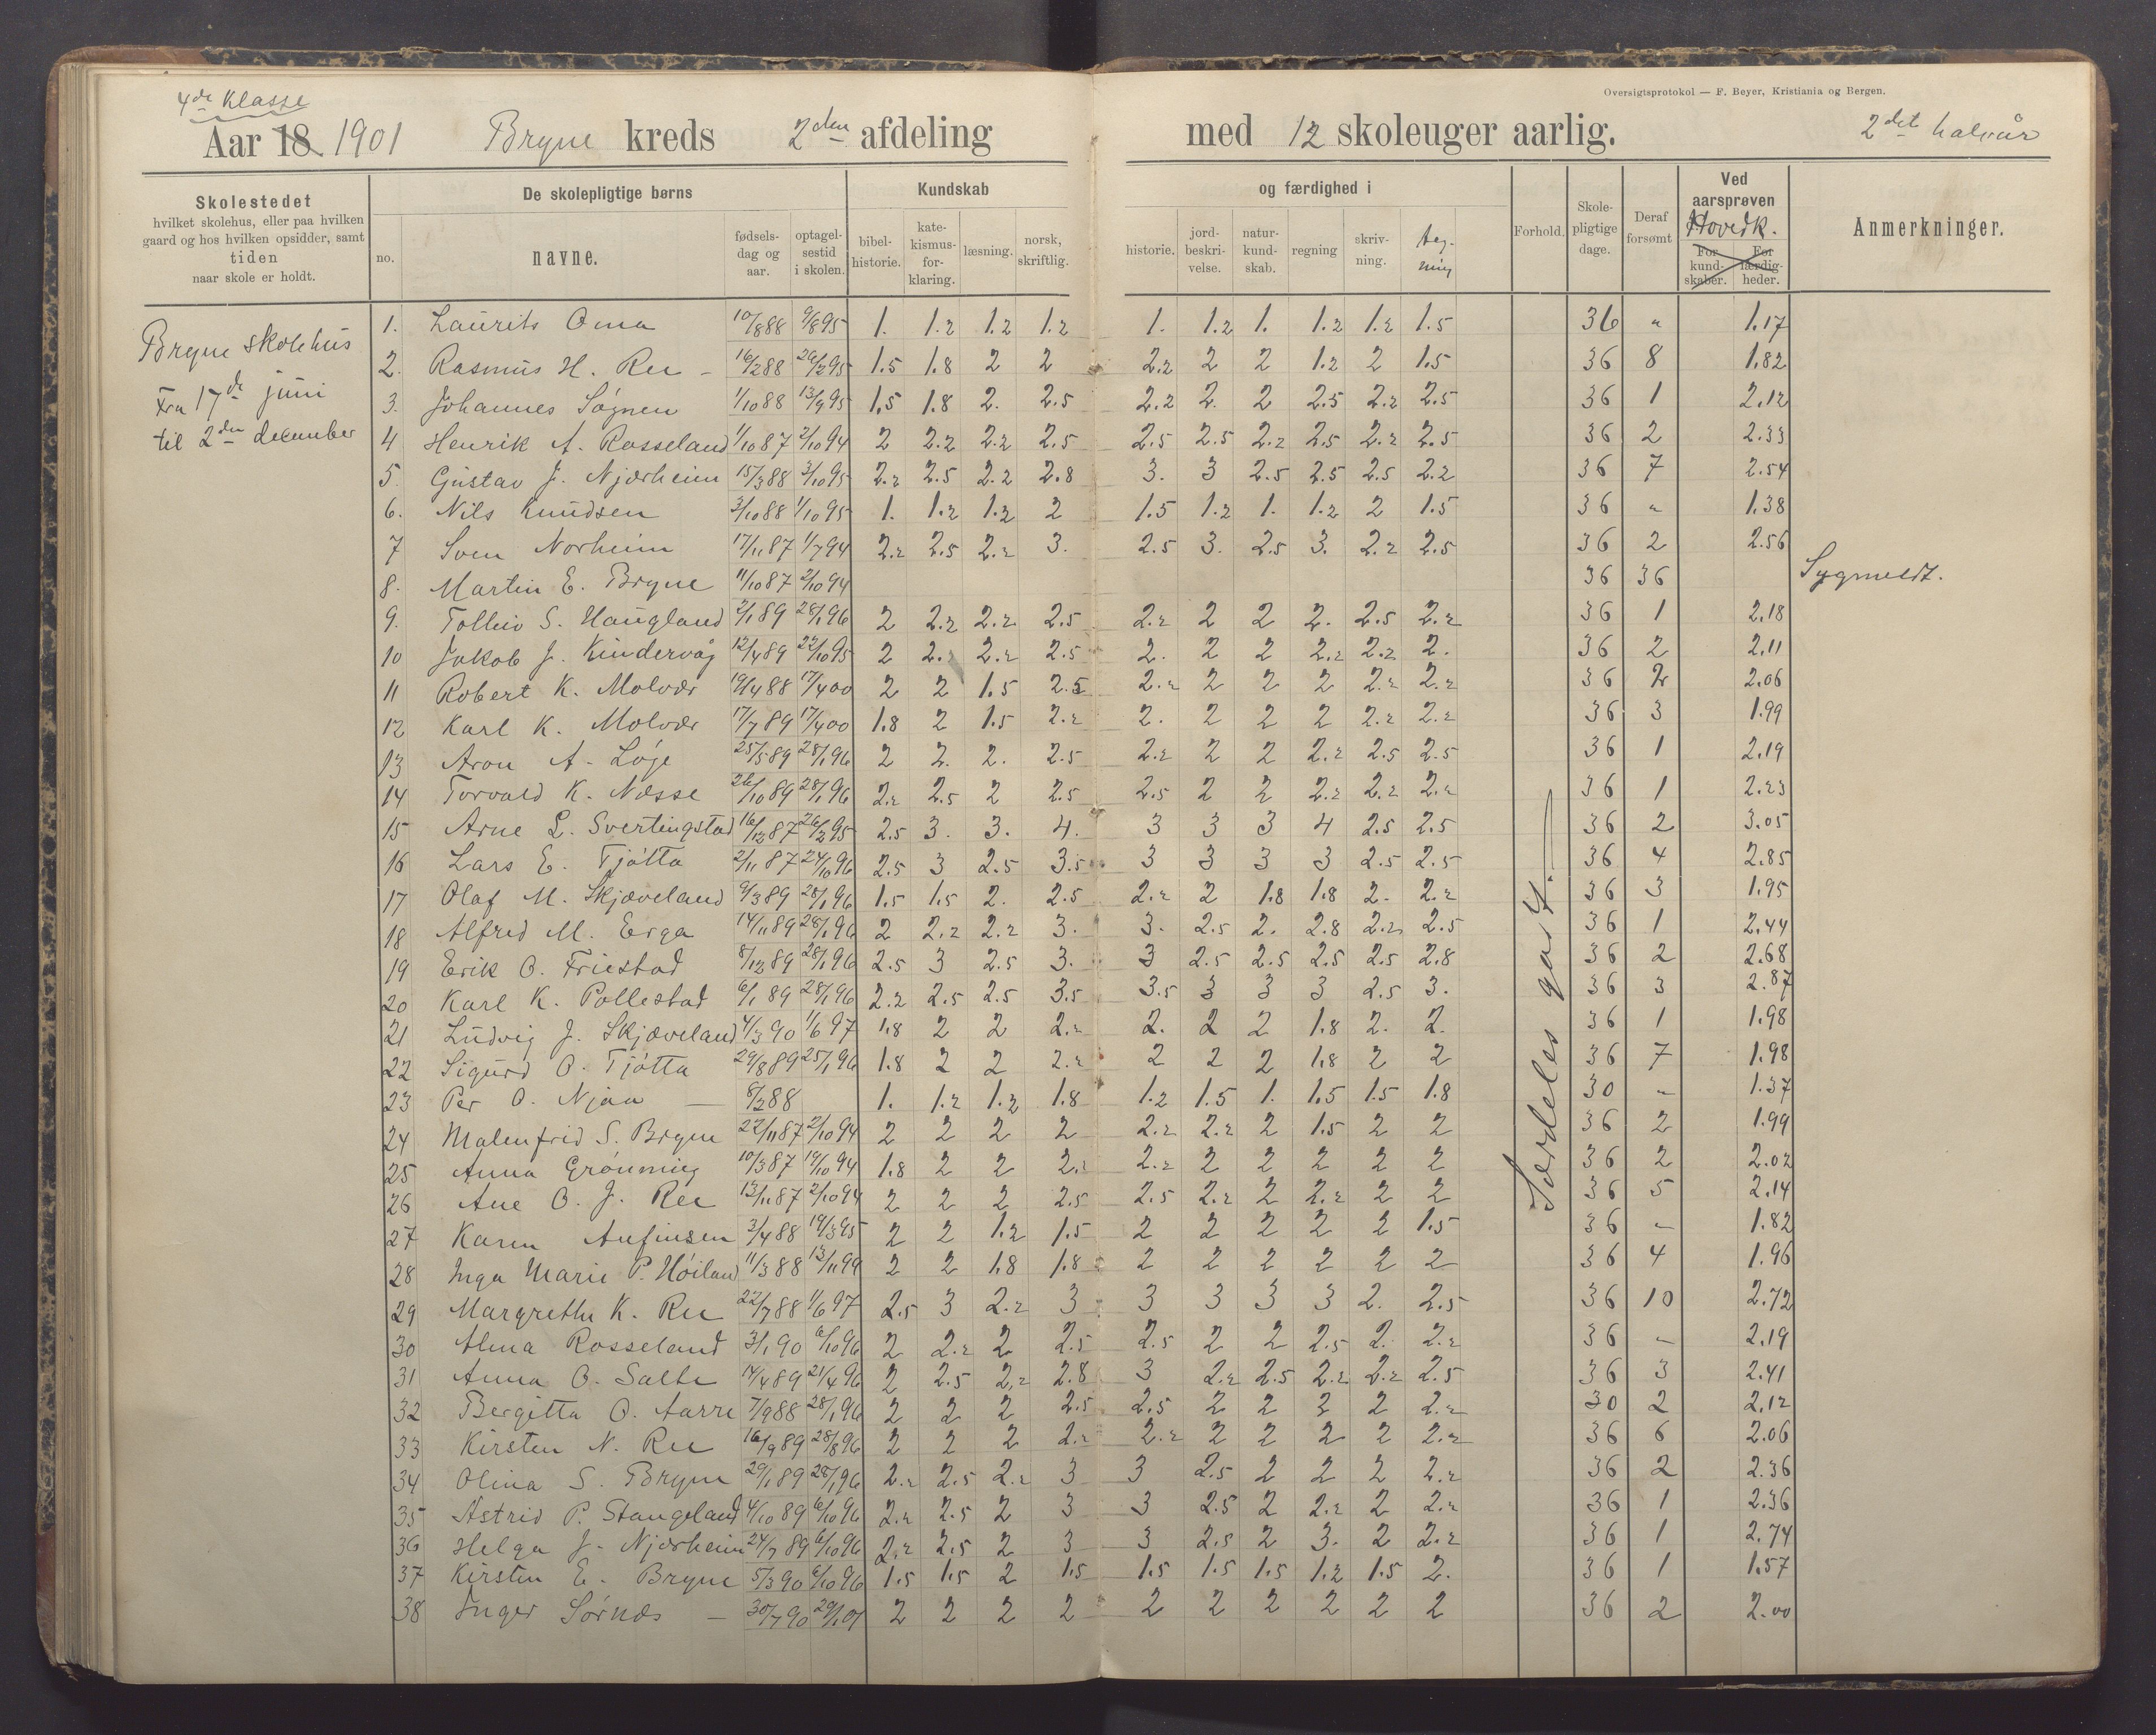 4de Klasse
Oversigtsprotokol — F. Beyer, Kristiania og Bergen.
Aar 18 1901 Bryne kreds 2den afdeling med 12 skoleuger aarlig. 2det halvår
Skolestedet
hvilket skolehus, eller paa hvilken
gaard og hos hvilken opsidder, samt
tiden
naar skole er holdt.
De skolepligtige børns
no. navne. fødsels-dag og aar. optagel-sestid i skolen.
Kundskab og færdighed i
bibel-historie. kate-kismus-for-klaring. læsning. norsk, skriftlig. historie. jord-beskri-velse. natur-kund-skab. regning skriv-ning. tegning
Forhold. Skole-pligtige dage. Deraf forsømt Ved aarsprøven Hovedk. For kund-skaber. For færdig-heder. Anmerkninger.
Bryne skolehus
Fra 17de juni
til 2den december
1. Laurits Oma 10/8 88 9/8 95 1. 1.2 1.2 1.2 1. 1.2 1. 1.2 1.2 1.5 36 " 1.17
2. Rasmus H. Ree - 16/2 88 26/2 95 1.5 1.8 2 2 2.2 2 2 1.2 2 1.5 36 8 1.82
3. Johannes Søgnen 1/10 88 13/9 95 1.5 1.8 2. 2.5 2.2 2. 2 2.5 2.2 2.5 36 1 2.12
4 Henrik A. Rosseland 1/10 87 2/10 94 2 2.2 2.2 2.5 2.5 2.5 2.2 2.5 2.2 2.5 36 2 2.33
5. Gustav J. Njærheim 15/3 88 3/10 95 2.2 2.5 2.2 2.8 3. 3 2.5 2.5 2.5 2.2 36 7 2.54
6. Nils Knudsen 3/10 88 1/10 95 1. 1.2 1.2 2 1.5 1.2 1. 1.2 2 1.5 36 " 1.38
7 Sven Norheim 17/11 87 1/7 94 2.2 2.5 2.2 3. 2.5 3. 2.5 3. 2.2 2.5 36 2 2.56
8. Martin E. Bryne 11/10 87 2/10 94 36 36 Sygmeldt.
9. Tolleiv S. Haugland 2/1 89 28/1 96 2 2.2 2.2 2.5 2.2 2 2 2. 2.5 2.2 36 1 2.18
10 Jakob J. Kindervåg 12/4 89 22/10 95 2 2.2 2.2 2.5 2. 2 2 2.2 2.2 2. 36 2 2.11
11 Robert K. Molvær 19/4 88 17/4 00 2 2 1.5 2.5 2.2 2 2 2 2.2 2.2 36 2 2.06
12 Karl K. Molvær 17/7 89 17/4 00 1.8 2 1.5 2.2 2. 2 2 2 2.2 2.2 36 3 1.99
13 Aron A. Løge 25/5 89 28/1 96 2 2. 2. 2.5 2.2 2 2 2.2 2.5 2.5 36 1 2.19
14 Torvald K. Næsse 26/10 89 28/1 96 2.2 2.5 2 2.5 2.5 2 2 2.2 2.2 2.2 36 1 2.23
15 Arne L. Svertingstad 16/12 87 26/2 95 2.5 3. 3. 4. 3 3 3 4 2.5 2.5 36 2 3.05
16 Lars E. Tjøtta 2/11 87 24/10 96 2.5 3 2.5 3.5 3 3 3 3 2.5 2.5 36 4 2.85
17 Olaf M. Skjæveland 9/3 89 28/1 96 1.5 1.5 2. 2.5 2.2 2 1.8 1.8 2. 2.2 36 3 1.95
18 Alfred M. Erga 14/11 89 28/1 96 2 2.2 2.2 3. 3. 2.5 2. 2.8 2.2 2.5 36 1 2.44
19 Erik O. Friestad 8/12 89 28/1 96 2.5 3 2.5 3. 3 2.5 2.5 2.5 2.5 2.8 36 2 2.68
20 Karl K. Pollestad 6/1 89 28/1 96 2.2 2.5 2.5 3.5 3.5 3 3 3 2.5 3. 36 3 2.87
21 Ludvig J. Skjæveland 4/3 90 1/6 97 1.8 2 2 2.2 2. 2 2 1.8 2. 2. 36 1 1.98
22 Sigurd O. Tjøtta 29/8 89 25/1 96 1.8 2 2 2.2 2 2 2 1.8 2 2 36 7 1.98
23 Per O. Njaa — 8/2 88 1. 1.2 1.2 1.8 1.2 1.5 1. 1.5 1.5 1.8 30 " 1.37
24 Malenfrid S. Bryne 22/11 87 2/10 94 2 2 2 2 2.2 2.2 2 1.5 2 2 36 2 1.99
25 Anna Grønning 10/3 87 19/10 94 1.8 2 2 2.2 2.2 2 2 2 2 2 36 2 2.02
26 Ane O. J. Ree 13/11 87 2/10 94 2 2 2 2.5 2.5 2.2 2 2.2 2 2 36 5 2.14
27 Karen Anfinsen 3/4 88 19/3 95 2 2 1.2 1.5 2 2 2 2 2 1.5 36 " 1.82
28 Inga Marie P. Høiland 11/3 88 13/11 99 2 2 1.8 1.8 2 2 2 2 2 2 36 4 1.96
29 Margrethe K. Ree 22/7 88 1/6 97 2.5 3 2.2 3 3 3 3 3 2. 2.5 36 10 2.72
30 Alma Rosseland 3/1 90 6/10 96 2 2.2 2 2.5 2.5 2 2 2.5 2. 2.2 36 " 2.19
31 Anna O. Salte 14/4 89 21/4 96 2 2.5 2.2 2.8 3 2.2 2.5 2.2 2.2 2.5 36 3 2.41
32 Bergitta O. Aarre 7/9 88 28/1 96 2 2 2 2.5 2.5 2 2 2 2 2.2 30 2 2.12
33 Kirsten N. Ree 16/9 89 28/8 96 2 2 2 2.2 2.2 2 2 2 2 2.2 36 6 2.06
34 Olina S. Bryne 29/1 89 28/1 96 2.2 2.5 2.2 3 3 2.5 2 2 2 2.2 36 2 2.36
35 Astrid P. Stangeland 4/10 89 6/10 96 2.2 2.5 2 3 3 2.5 2 2.2 2 2.2 36 1 2.36
36 Helga J. Njærheim 24/7 89 6/10 96 2.2 2.5 2 3 3 2.5 2 3. 2 2.2 36 1 2.74
37 Kirsten E. Bryne 5/3 90 6/10 96 1.5 1.5 2 1.5 1.5 1.5 1.5 1.2 1.5 2. 36 1 1.57
38 Inger Sørnæs — 30/7 90 29/1 01 2 2 2 2 2 2 2 2 2 2 36 2 2.00
Særdeles godt.